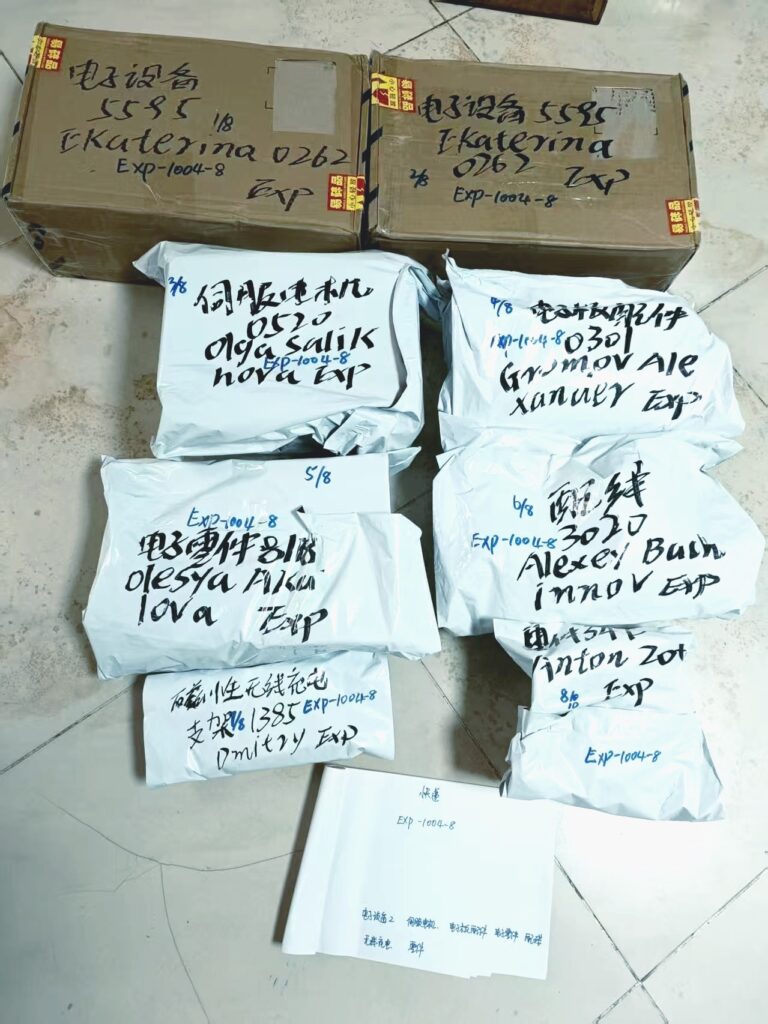 电子设备
5595
1/8
Ekaterina 0262
Exp-1004-8
Exp
电子设备 5595
Ekaterina
0262 Exp
2/8
Exp-1004-8
易碎品
小心轻放
3/8
伺服电机
0520
Olga Salik
Exp-1004-8
nova Exp
4/8
电子板配件
Exp-1004-8
0301
Gromov Ale
xander Exp
5/8
Exp-1004-8
电子零件
Olesya Aku
lova Exp
6/8
配线
3020
Exp-1004-8
Alexey Buch
innov Exp
磁性无线充电
支架 1385 Exp-1004-8
Dmitry Exp
Anton Zot
8/8
Exp
Exp-1004-8
快递
Exp-1004-8
电子设备2 伺服电机 电子板配件 电子零件 配线
无线充电 零件